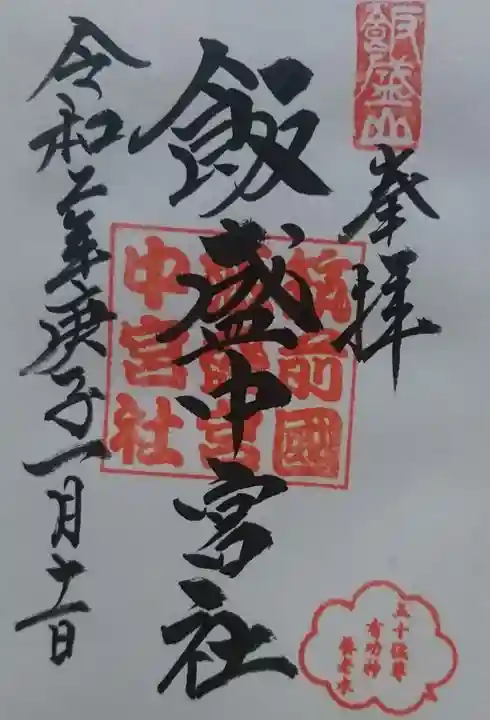 飯盛山
奉拝
飯盛中宮社
筑前國
飯盛宮
中宮社
令和二年庚子一月十一日
五十猛尊
有功神
養老水